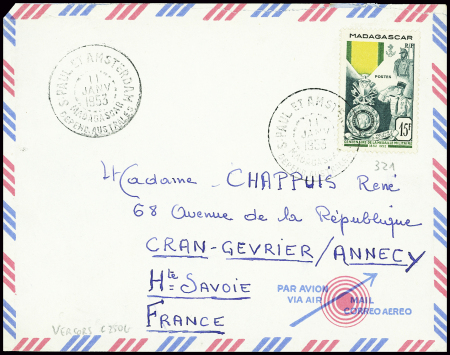 MADAGASCAR
RF
POSTES
15F
CENTENAIRE DE LA MEDAILLE MILITAIRE
ST PAUL ET AMSTERDAM
11
JANV
1953
MADAGASCAR
DEPEND. AUSTRALES
ST PAUL ET AMSTERDAM
11
JANV
1953
321
Madame CHAPPUIS René
68 Avenue de la République
CRAN-GEVRIER/ANNECY
Hte SAVOIE
FRANCE
PAR AVION
VIA AIR MAIL
CORREO AEREO